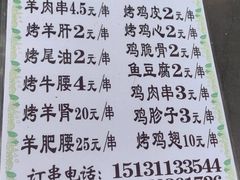 羊肉串4.5元/串 烤鸡皮2元/串
烤羊肝2元/串 烤鸡心2元/串
烤尾油2元/串 鸡脆骨2元/串
烤牛腰4元/串 鱼豆腐2元/串
烤羊肾20元/串 鸡肉串3元/串
羊肥腰25元/串 鸡胗子3元/串
烤鸡翅10元/串
订串电话：15131133544